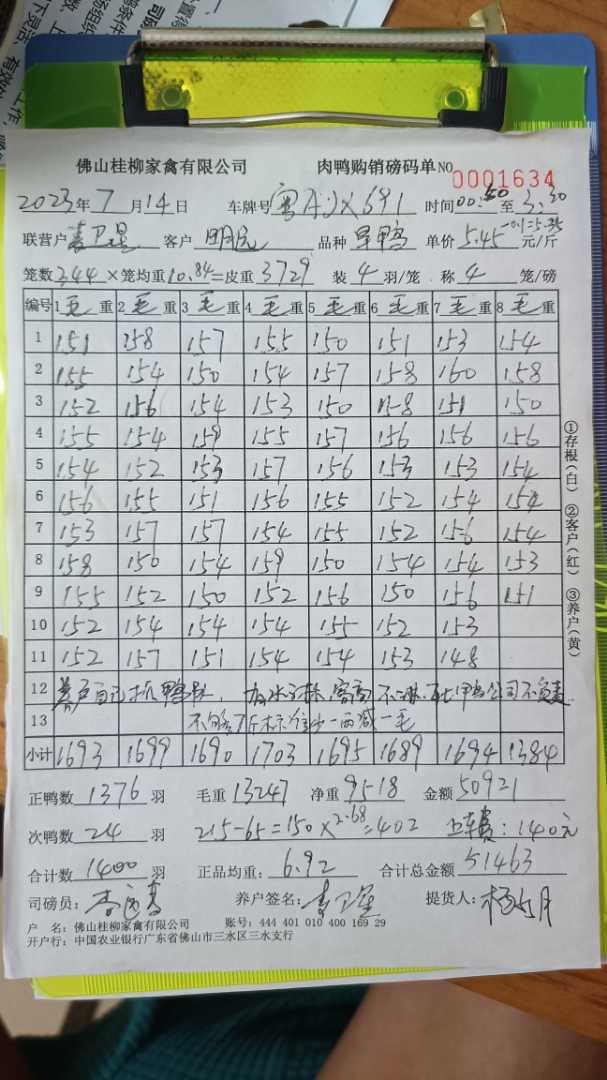 佛山桂柳家禽有限公司 肉鸭购销磅码单 NO 0001634
2023年7月14日 车牌号 时间00:50至3:30
联营户 客户 品种 单价5.45 -0.1=5.35 元/斤
笼数344×笼均重10.84=皮重3729 装4羽/笼 称4笼/磅
编号 1毛重 2毛重 3毛重 4毛重 5毛重 6毛重 7毛重 8毛重
1 151 158 157 155 150 151 153 154
2 155 154 150 154 157 158 160 158
3 152 156 154 153 150 158 151 150
4 155 154 159 155 157 156 156 156
5 154 152 153 157 156 153 153 154
6 156 155 151 156 155 152 154 154
7 153 157 157 154 155 152 156 154
8 158 150 154 159 150 154 154 153
9 155 152 150 152 156 150 156 151
10 152 154 154 154 155 152 153
11 152 157 151 154 154 153 148
12 养户自己抓鸭
13 一两减一毛
小计 1693 1699 1690 1703 1695 1689 1694 1384
正鸭数1376羽 毛重13247 净重9518 金额50921
次鸭数24羽 215-65=150×2.68=402 卫车费：140元
合计数1400羽 正品均重：6.92 合计总金额51463
司磅员： 养户签名： 提货人：
户 名：佛山桂柳家禽有限公司 账号：444 401 010 400 169 29
开户行：中国农业银行广东省佛山市三水区三水支行
①存根（白） ②客户（红） ③养户（黄）